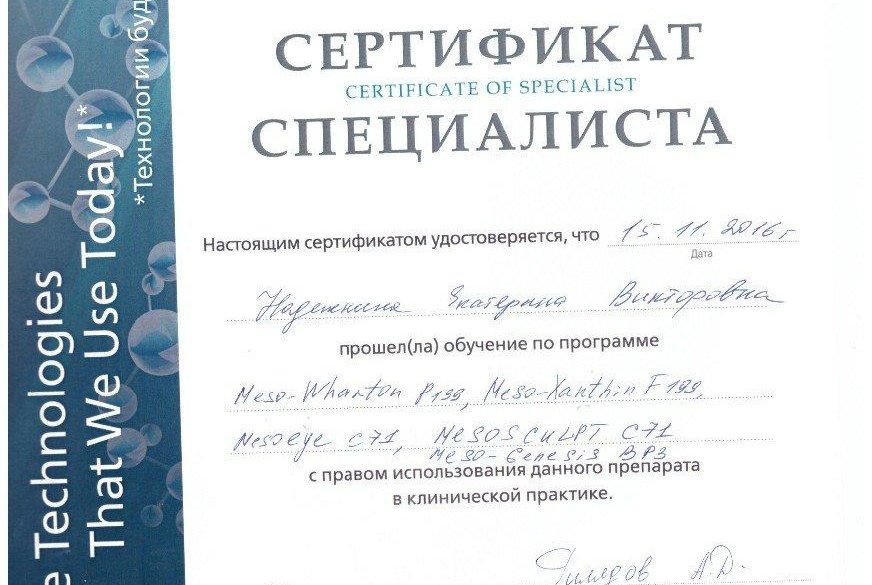 СЕРТИФИКАТ
CERTIFICATE OF SPECIALIST
СПЕЦИАЛИСТА
Настоящим сертификатом удостоверяется, что 15.11.2016г
Дата
Надежкина Екатерина Викторовна
прошел(ла) обучение по программе
Meso-Wharton P199, Meso-Xanthin F199,
Mesoeye C71, MESOSCULPT C71
Meso-Genesis BP3
с правом использования данного препарата
в клинической практике.
А.Д.
e Technologies
That We Use Today!*
*Технологии буд